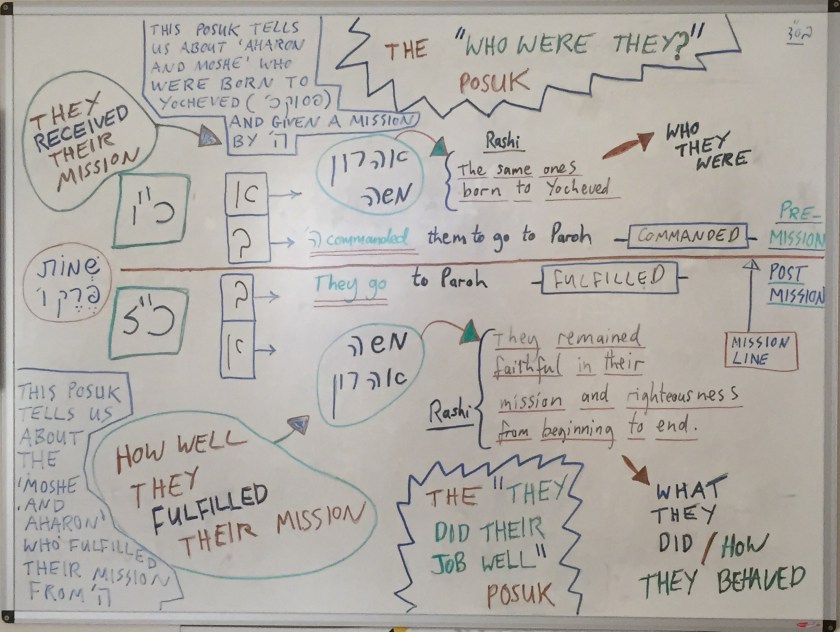 בס"ד
THIS POSUK TELLS
US ABOUT 'AHARON
AND MOSHE' WHO
WERE BORN TO
YOCHEVED (פסוק כ')
AND GIVEN A MISSION
BY 'ה
THE "WHO WERE THEY?"
POSUK
THEY
RECEIVED
THEIR
MISSION
כ"ו
א
אהרון
משה
Rashi
The same ones
born to Yocheved
WHO
THEY
WERE
ב
'ה commanded them to go to Paroh
COMMANDED
PRE-
MISSION
שְׁמוֹת
פֶּרֶק ו'
כ"ז
ב
They go to Paroh
FULFILLED
POST
MISSION
MISSION
LINE
משה
אהרון
Rashi
They remained
faithful in their
mission and righteousness
from beginning to end.
THIS POSUK
TELLS US
ABOUT
THE
'MOSHE
AND
AHARON'
WHO FULFILLED
THEIR MISSION
FROM 'ה
HOW WELL
THEY
FULFILLED
THEIR MISSION
THE "THEY
DID THEIR
JOB WELL"
POSUK
WHAT
THEY
DID / HOW
THEY BEHAVED